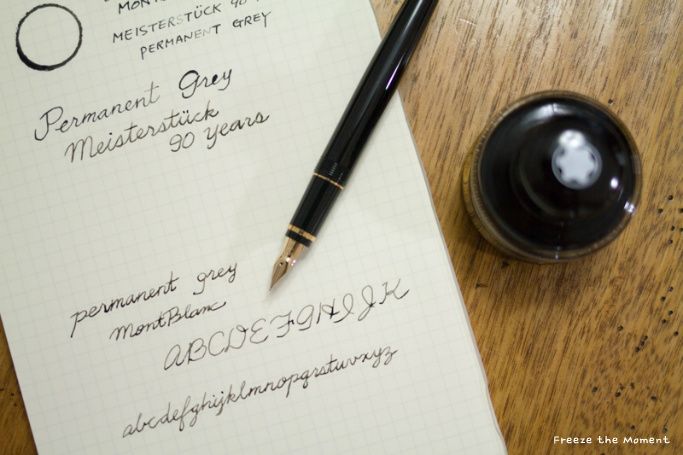 MEISTERSTÜCK 90
PERMANENT GREY
Permanent Grey
Meisterstück
90 years
permanent grey
MontBlanc
ABCDEFGHIJK
abcdefghijklmnopqrstuvwxyz
Freeze the Moment